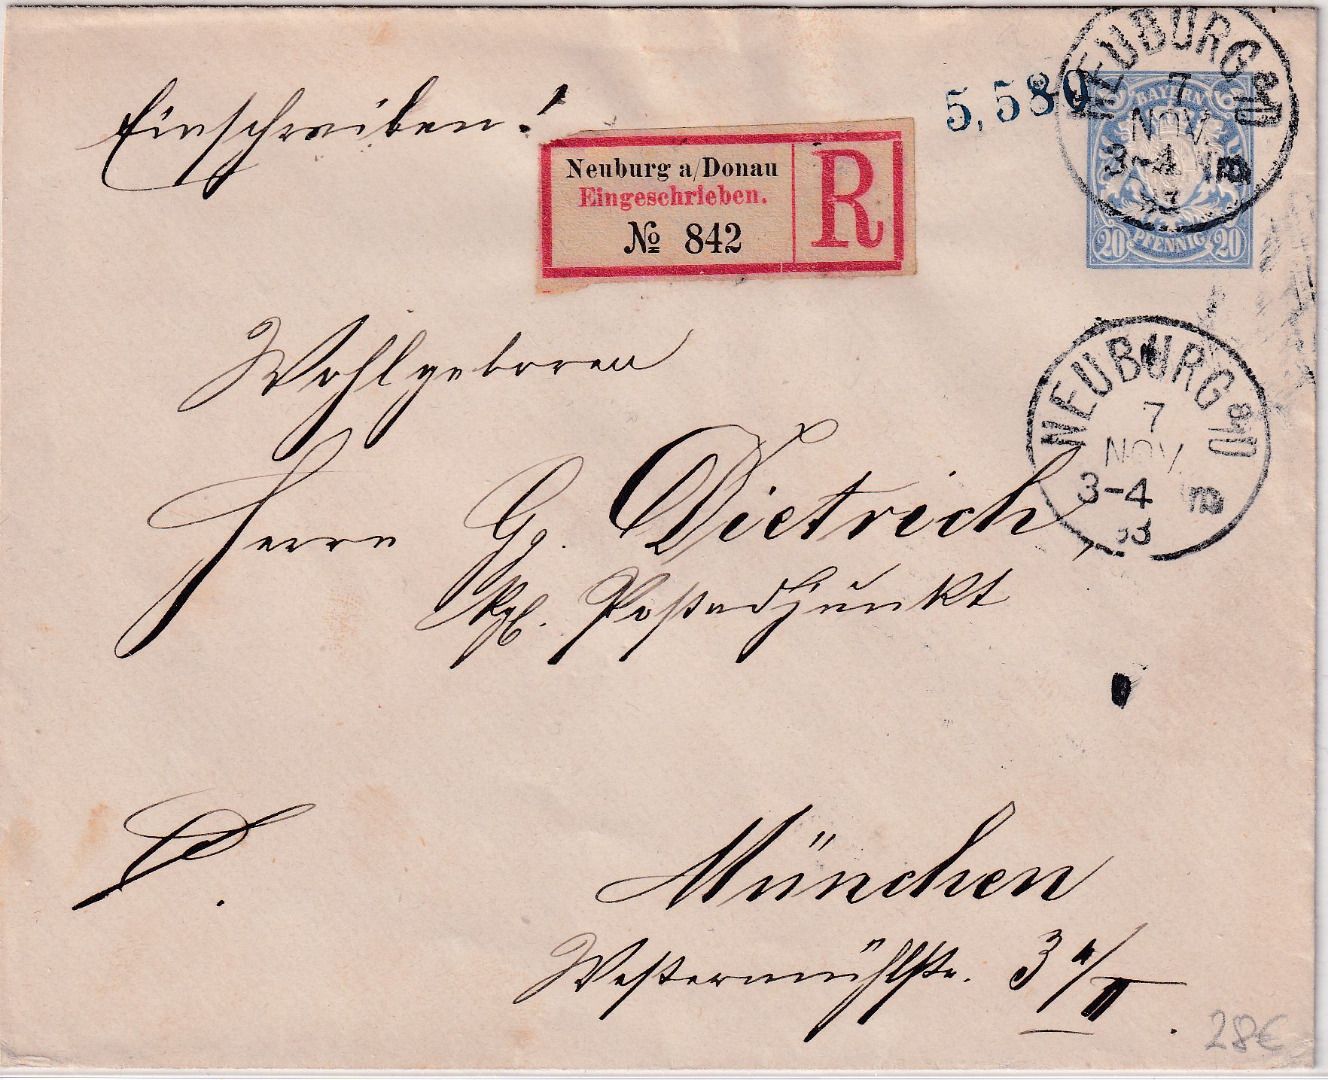 Einschreiben!
5,580
Neuburg a/Donau
Eingeschrieben.
№ 842
R
BAYERN
20 PFENNIG 20
NEUBURG a/D
7
NOV.
3-4 NB
93
Wohlgeboren
Herrn Gg. Dietrich,
Kgl. Postadjunkt
NEUBURG a/D
7
NOV.
3-4
93
München
Westermühlstr. 3 a/II.
28€